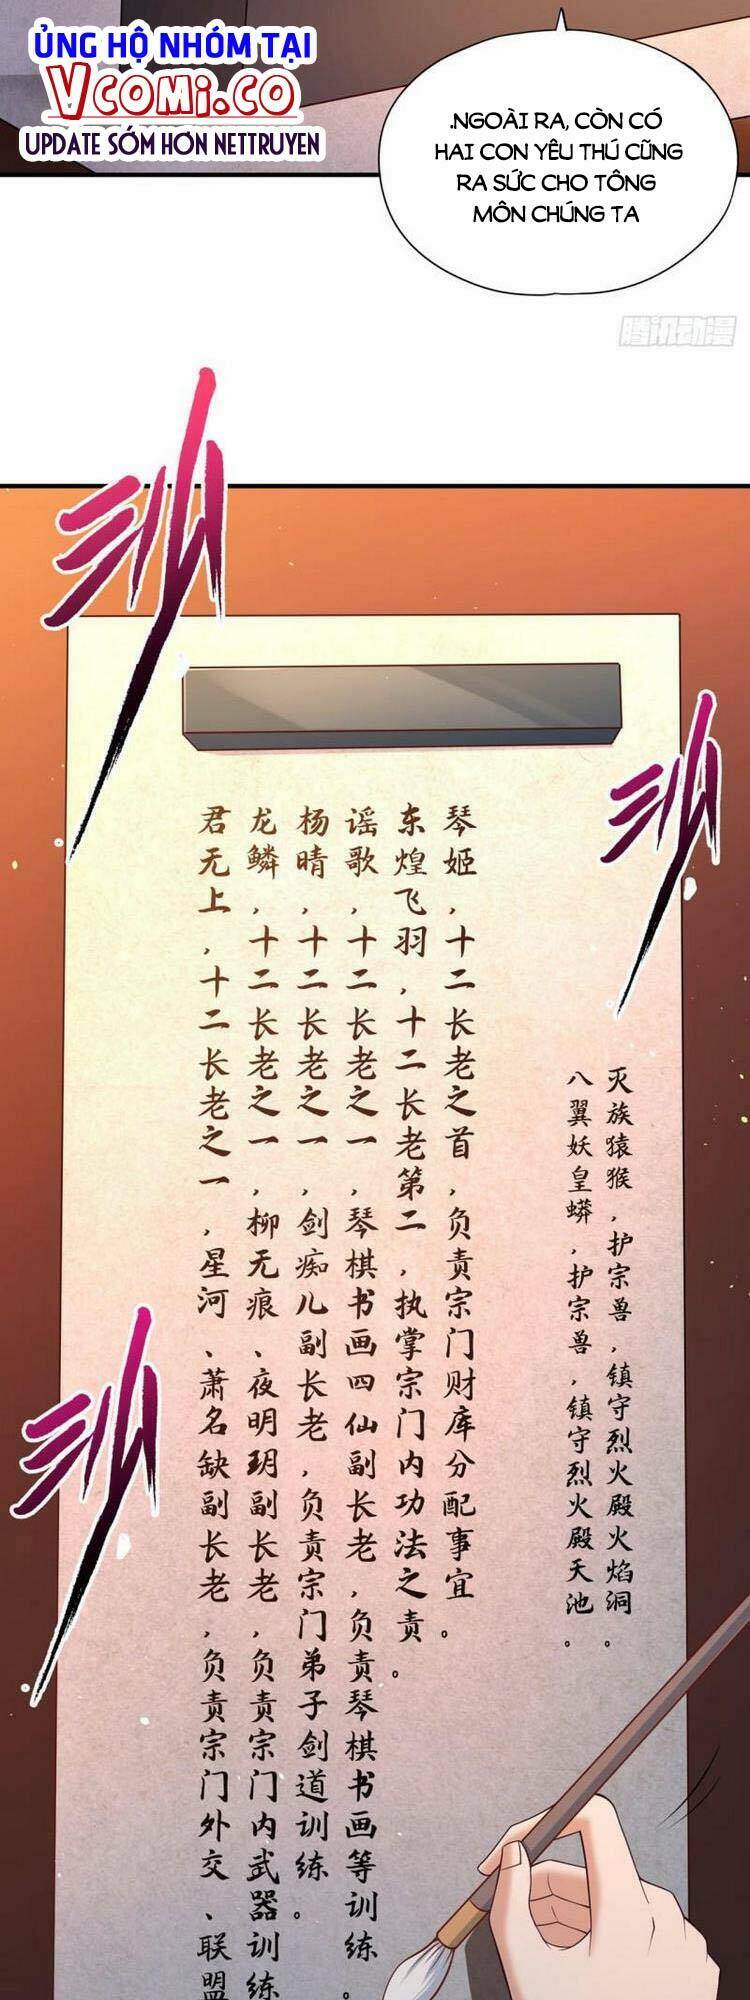 ỦNG HỘ NHÓM TẠI
VCOMI.CO
UPDATE SỚM HƠN NETTRUYEN
.NGOÀI RA, CÒN CÓ
HAI CON YÊU THÚ CŨNG
RA SỨC CHO TÔNG
MÔN CHÚNG TA
腾讯动漫
灭族猿猴，护宗兽，镇守烈火殿火焰洞。
八翼妖皇蟒，护宗兽，镇守烈火殿天池。
琴姬，十二长老之首，负责宗门财库分配事宜。
东煌飞羽，十二长老第二，执掌宗门内功法之责。
谣歌，十二长老之一，琴棋书画四仙副长老，负责琴棋书画等训练。
杨晴，十二长老之一，剑痴儿副长老，负责宗门弟子剑道训练。
龙鳞，十二长老之一，柳无痕、夜明玥副长老，负责宗门内武器训练
君无上，十二长老之一，星河、萧名缺副长老，负责宗门外交、联盟